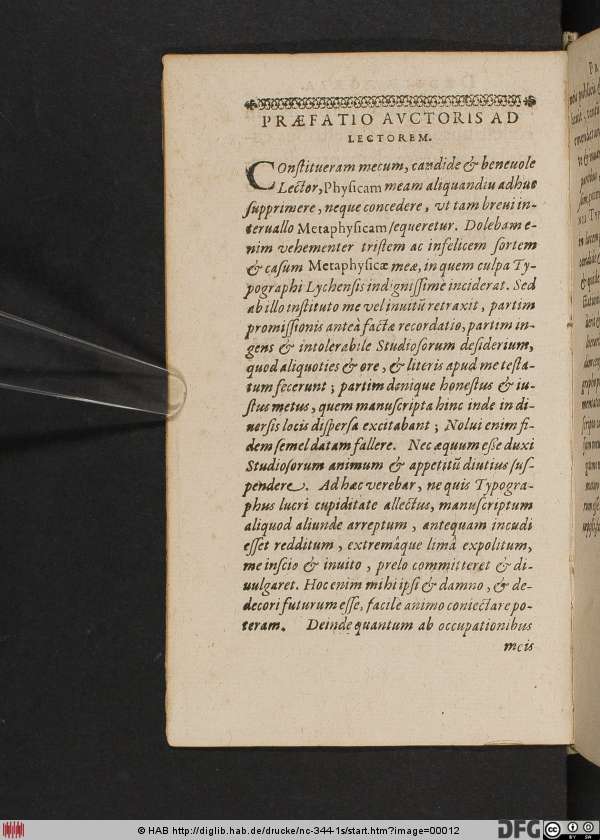 PRÆFATIO AVCTORIS AD
LECTOREM.
COnſtitueram mecum, candide & beneuole
Lector, Phyſicam meam aliquandiu adhuc
ſupprimere, neque concedere, vt tam breui in-
teruallo Metaphyſicam ſequeretur. Dolebam e-
nim vehementer triſtem ac infelicem ſortem
& caſum Metaphyſicæ meæ, in quem culpa Ty-
pographi Lychenſis indigniſſime inciderat. Sed
ab illo inſtituto me vel inuitū retraxit, partim
promiſſionis anteà factæ recordatio, partim in-
gens & intolerabile Studioſorum deſiderium,
quod aliquoties & ore, & literis apud me teſta-
tum fecerunt; partim denique honeſtus & iu-
ſtus metus, quem manuſcripta hinc inde in di-
uerſis locis diſperſa excitabant; Nolui enim fi-
dem ſemel datam fallere. Nec æquum eſſe duxi
Studioſorum animum & appetitū diutius ſuſ-
pendere. Ad hæc verebar, ne quis Typogra-
phus lucri cupiditate allectus, manuſcriptum
aliquod aliunde arreptum, antequam incudi
eſſet redditum, extremâque limâ expolitum,
me inſcio & inuito, prelo committeret & di-
uulgaret. Hoc enim mihi ipſi & damno, & de-
decori futurum eſſe, facile animo coniectare po-
teram. Deinde quantum ab occupationibus
meis
© HAB http://diglib.hab.de/drucke/nc-344-1s/start.htm?image=00012
DFG
CC BY SA